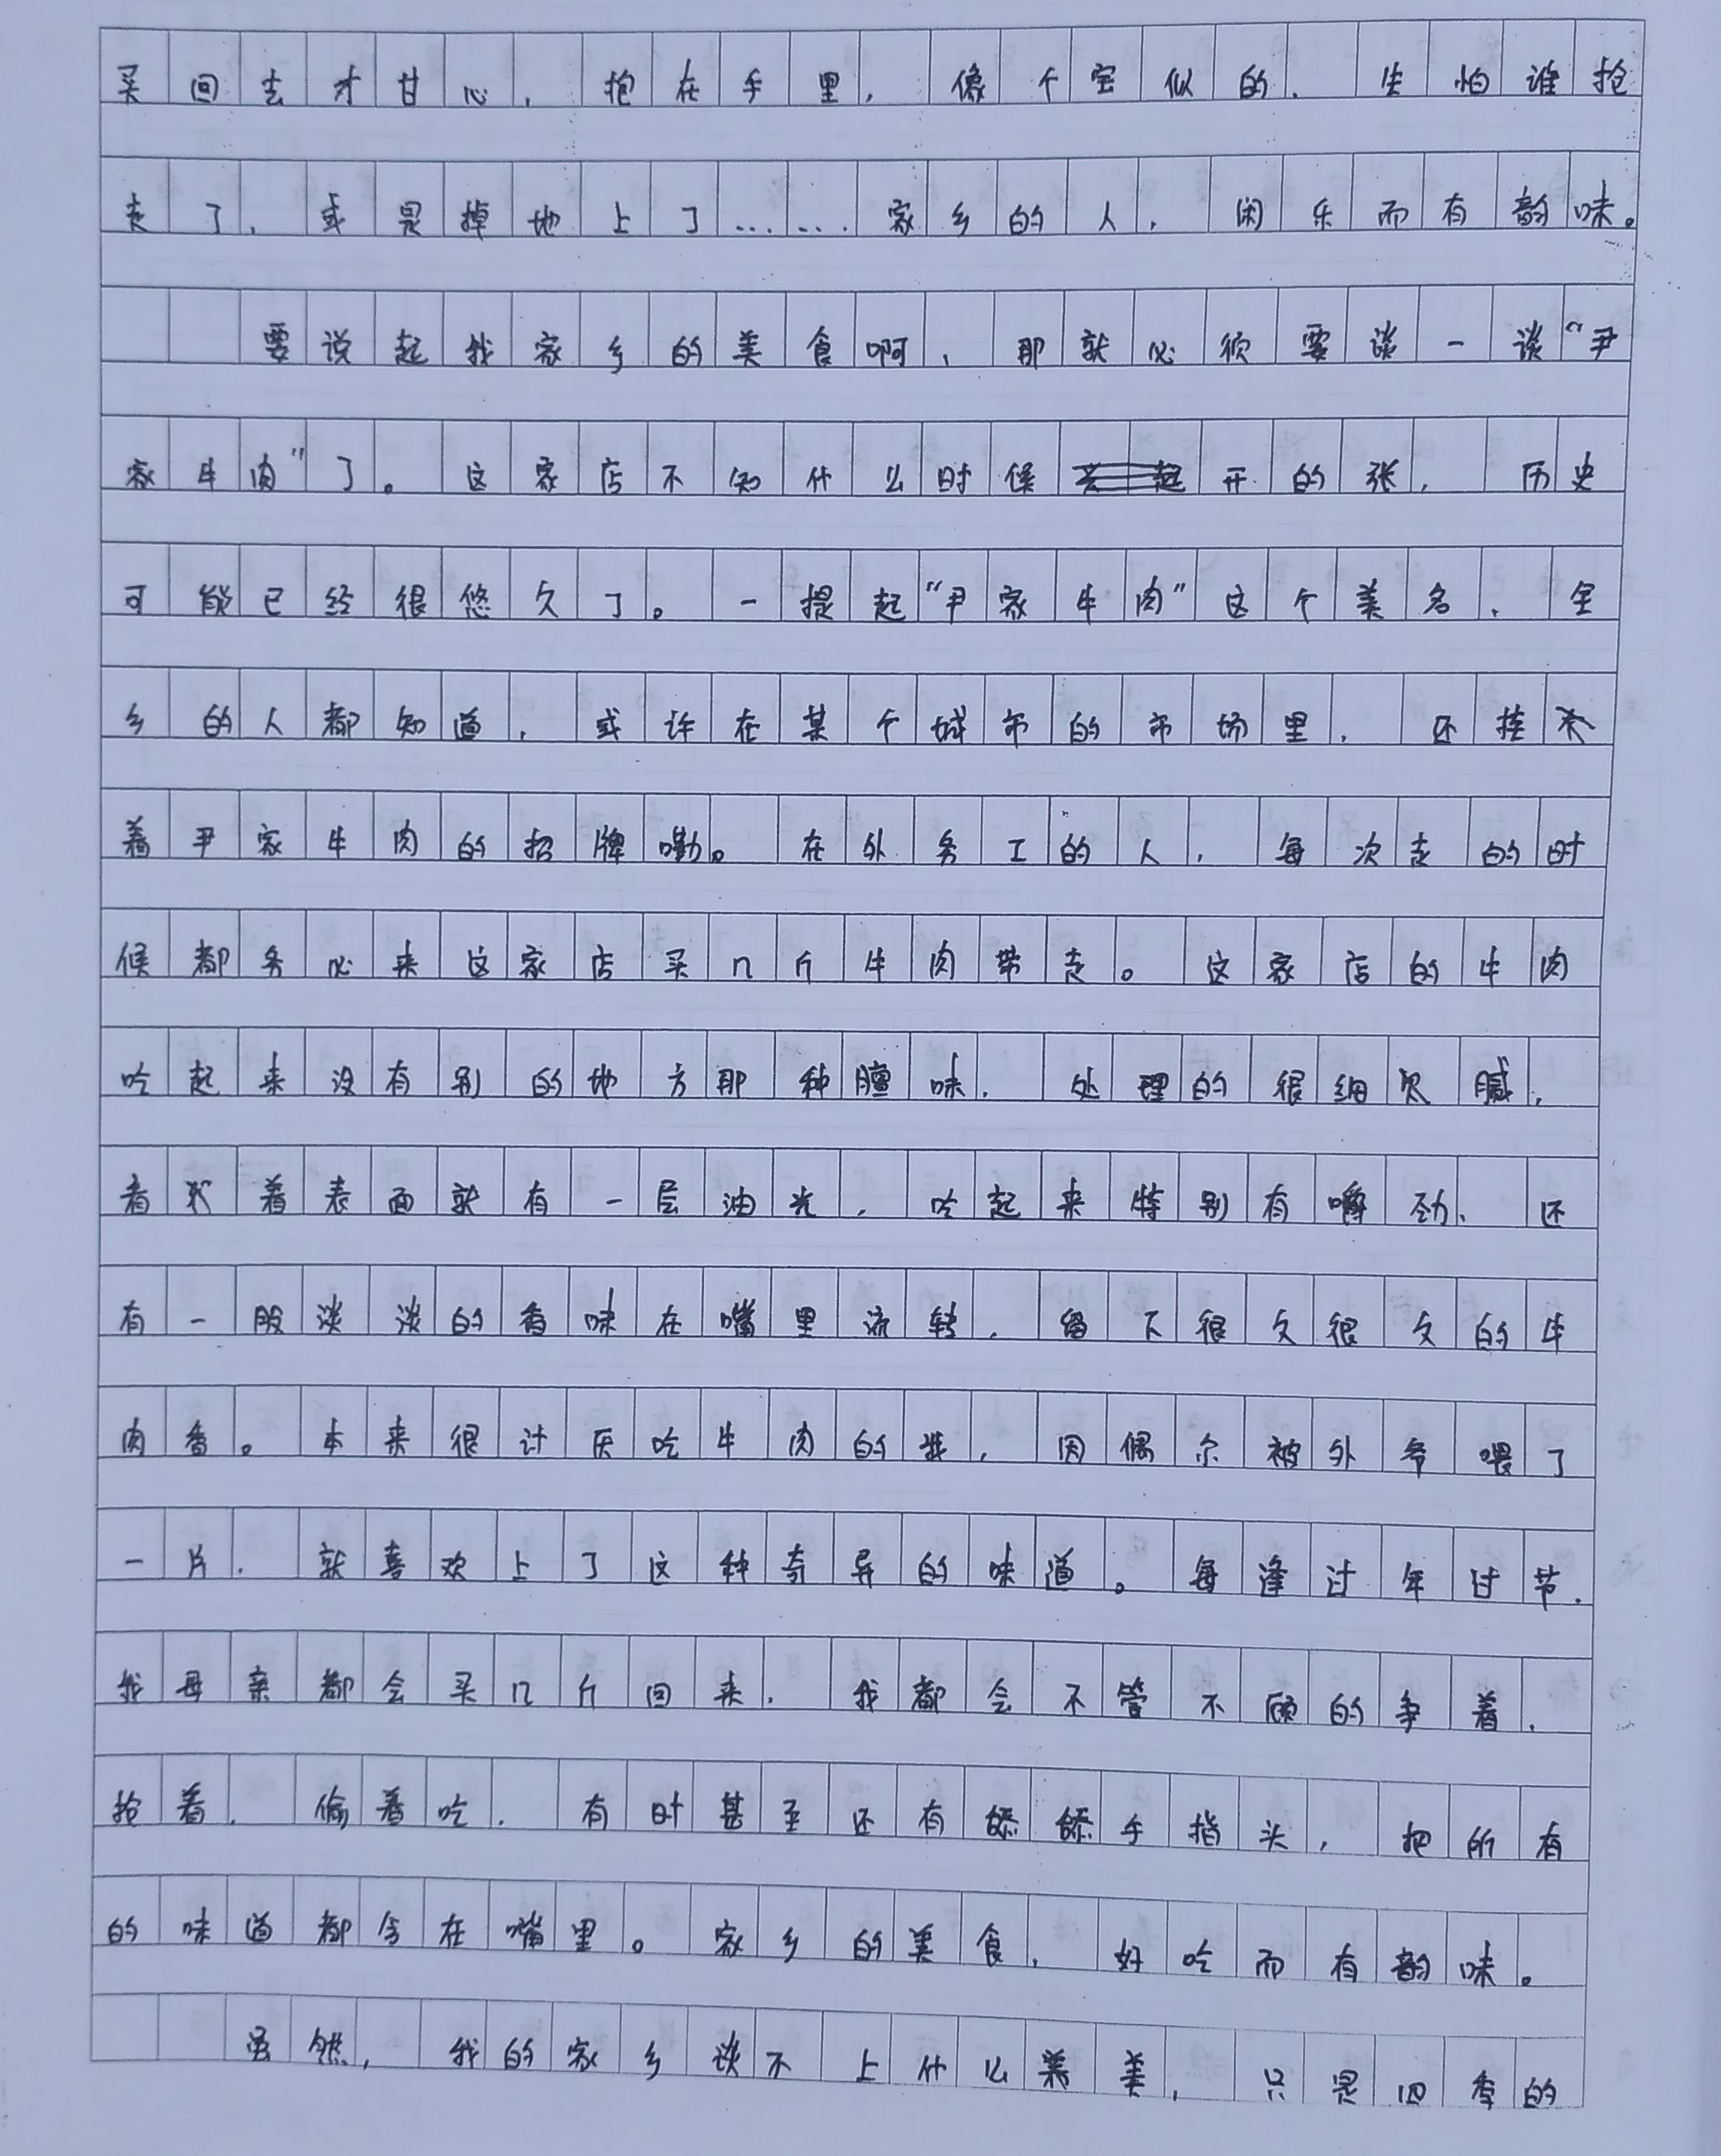 买回去才甘心，抱在手里，像个宝似的，生怕谁抢
走了，或是掉地上了……家乡的人，闲乐而有韵味。
要说起我家乡的美食啊，那就必须要谈一谈“尹
家牛肉”了。这家店不知什么时候开的张，历史
可能已经很悠久了。一提起“尹家牛肉”这个美名，全
乡的人都知道，或许在某个城市的市场里，还挂
着尹家牛肉的招牌嘞。在外务工的人，每次走的时
候都务必来这家店买几斤牛肉带走。这家店的牛肉
吃起来没有别的地方那种膻味，处理的很细腻，
看着表面就有一层油光，吃起来特别有嚼劲，还
有一股淡淡的香味在嘴里流转，留下很久很久的牛
肉香。本来很讨厌吃牛肉的我，因偶尔被外爷喂了
一片，就喜欢上了这种奇异的味道。每逢过年过节，
我母亲都会买几斤回来，我都会不管不顾的争着，
抢着，偷着吃，有时甚至还有舔舔手指头，把所有
的味道都含在嘴里。家乡的美食，好吃而有韵味。
虽然，我的家乡谈不上什么美，只是四季的